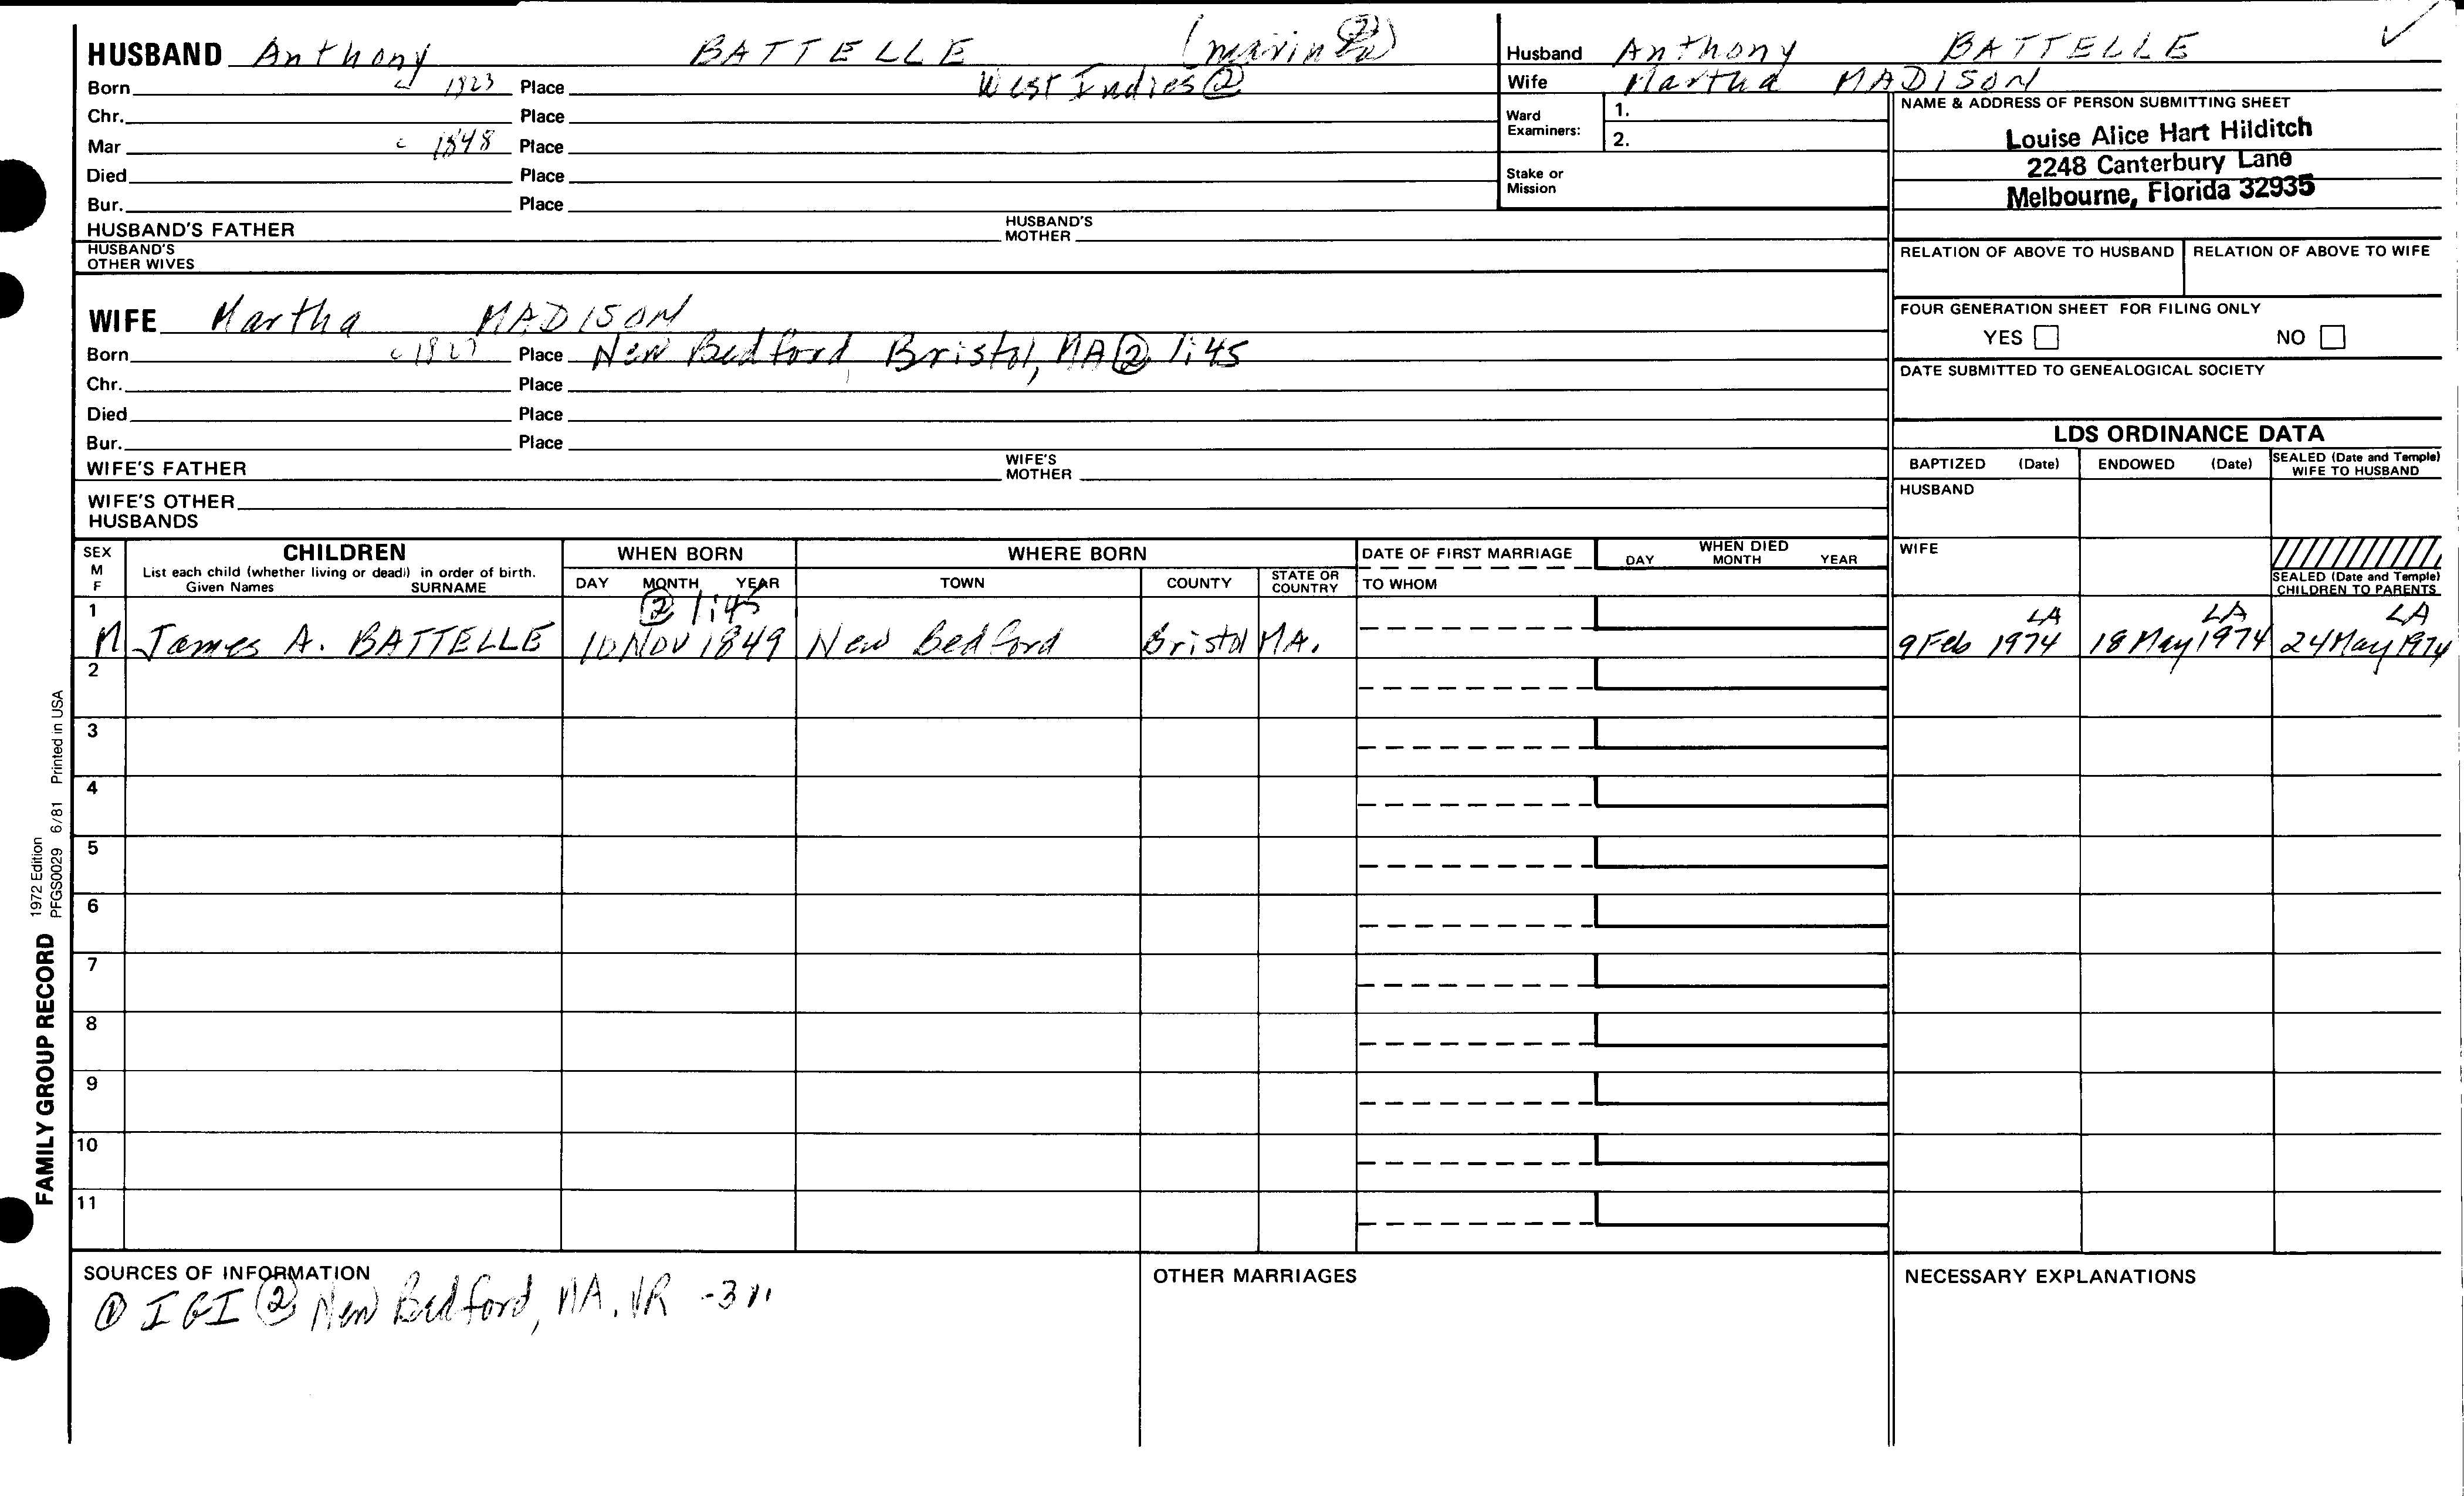 HUSBAND Anthony BATTELLE (marin
Born c 1823 Place West Indies ②
Chr. Place
Mar c 1848 Place
Died Place
Bur. Place
HUSBAND'S FATHER HUSBAND'S MOTHER
HUSBAND'S OTHER WIVES
WIFE Martha MADISON
Born c 1827 Place New Bedford, Bristol, MA ② 1:45
Chr. Place
Died Place
Bur. Place
WIFE'S FATHER WIFE'S MOTHER
WIFE'S OTHER HUSBANDS
Husband Anthony BATTELLE
Wife Martha MADISON
Ward Examiners: 1.
2.
Stake or Mission
NAME & ADDRESS OF PERSON SUBMITTING SHEET
Louise Alice Hart Hilditch
2248 Canterbury Lane
Melbourne, Florida 32935
RELATION OF ABOVE TO HUSBAND RELATION OF ABOVE TO WIFE
FOUR GENERATION SHEET FOR FILING ONLY
YES NO
DATE SUBMITTED TO GENEALOGICAL SOCIETY
LDS ORDINANCE DATA
BAPTIZED (Date) ENDOWED (Date) SEALED (Date and Temple) WIFE TO HUSBAND
HUSBAND
WIFE
SEALED (Date and Temple) CHILDREN TO PARENTS
SEX M F
CHILDREN
List each child (whether living or dead) in order of birth.
Given Names SURNAME
WHEN BORN
DAY MONTH YEAR
WHERE BORN
TOWN COUNTY STATE OR COUNTRY
DATE OF FIRST MARRIAGE
TO WHOM
WHEN DIED
DAY MONTH YEAR
1 ② 1:45 LA LA LA
M James A. BATTELLE 10 Nov 1849 New Bedford Bristol MA. 9 Feb 1974 18 May 1974 24 May 1974
2
3
4
5
6
7
8
9
10
11
SOURCES OF INFORMATION
① IGI ② New Bedford, MA. VR
OTHER MARRIAGES
NECESSARY EXPLANATIONS
FAMILY GROUP RECORD
1972 Edition
PFGS0029 6/81 Printed in USA